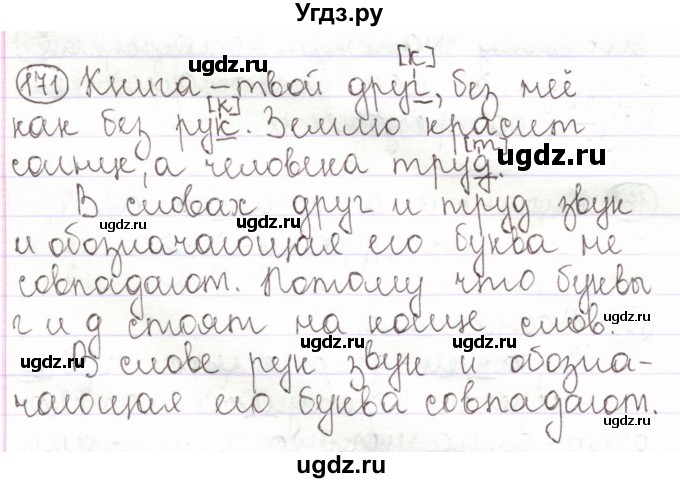 Угдз.ру
[к]
171 Книга – твой друг, без неё
[к]
как без рук. Землю красит
[т]
солнце, а человека труд.
В словах друг и труд звук
и обозначающая его буква не
совпадают. Потому что буквы
г и д стоят на конце слов.
В слове рук звук и обозна-
чающая его буква совпадают.
ugdz.ru
ugdz.ru
ugdz.ru
ugdz.ru
ugdz.ru
ugdz.ru
ugdz.ru
ugdz.ru
ugdz.ru
ugdz.ru
ugdz.ru
ugdz.ru
ugdz.ru